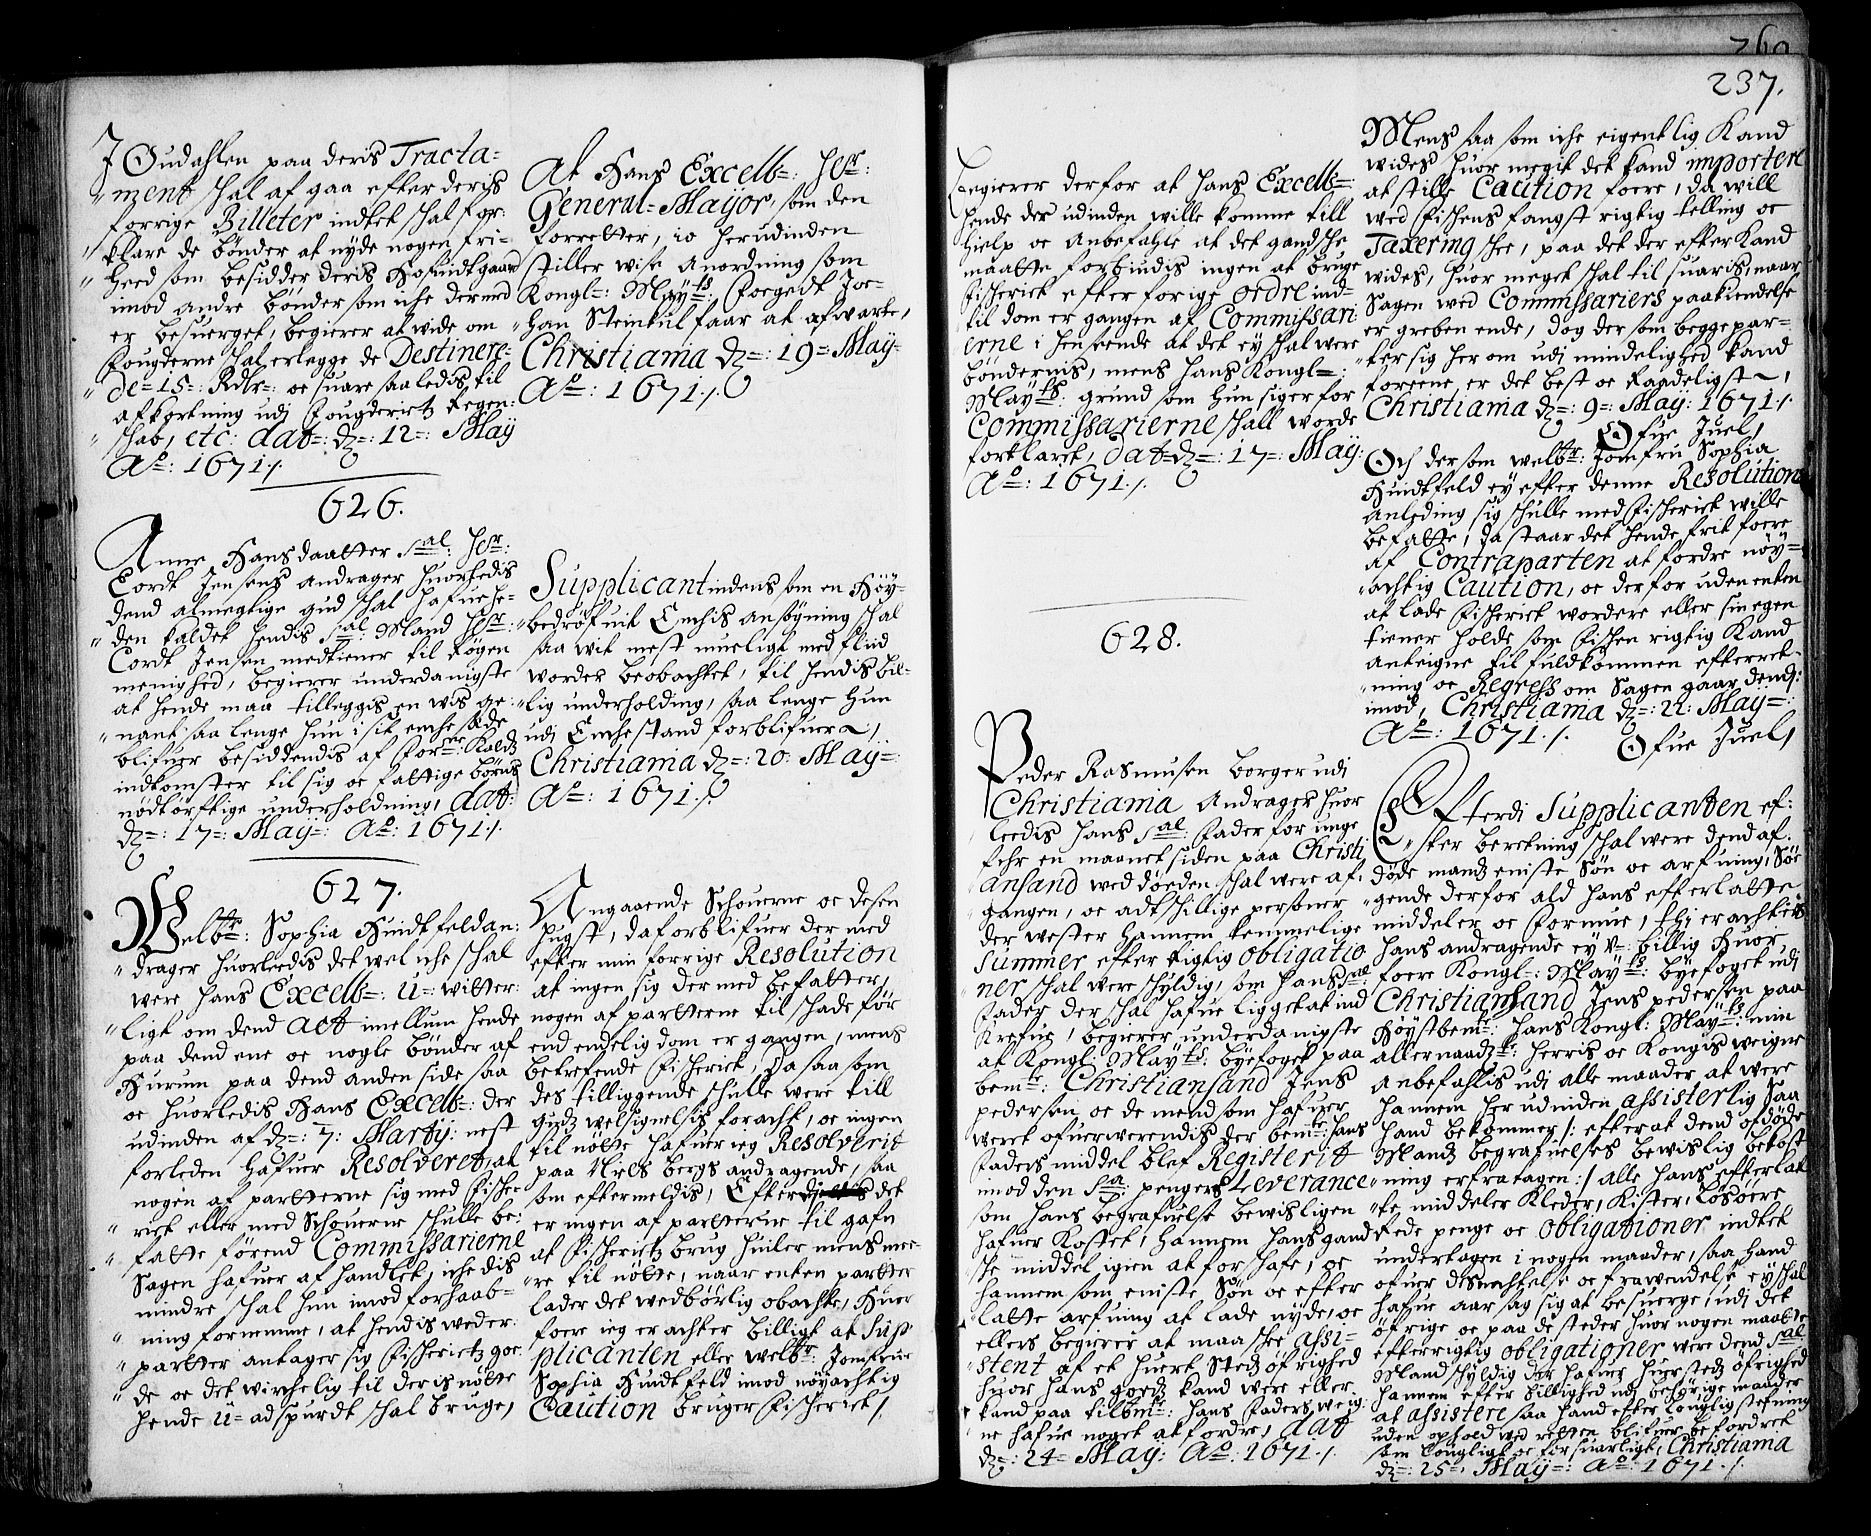 J Gudahlen paa deris Tracta=
ment schal af gaa efter deris
forrige Billeter indtet schal for:
klare de bønder at nyde nogen fri=
heed som besidder deris Hosindtgaard
imod andre bønder som iche dermed
er besuerget, begierer at wide om
fougderne schal erlegge de Destinere=
de=15=: Rdlr=: oc suare saaledis til
afkortning udj fougderietz Regen:
schab, etc: dat=: dz=: 12=: May
Ao=: 1671./.
At Hans Excell=: Her:
General=Mayor, som den
forretter, io herudinden
stiller wise Anordning som
Kongl=: Mayts: fogedt Jo=
han Steinkul faar at afwarte,
Christiania dz=: 19=: May=
Ao=: 1671./.
626.
Anne Hansdaatter sal: Her:
Cordt Jensens andrager huorledis
dend almegtige gud schal hafue he=
den kaldet hendis sal: Mland Her:
Cordt Jensen medtiener til Røgen
menighed, begierer underdanigste
at hende maa tilleggis en wis ge=
nant saa lenge hun i sit enche sæde
blifuer besiddendis af forne: Kaldtz
indkomster til sig oc fattige børns
nødtørftige underholdning, dat:
dz=: 17=: Maij=: Ao: 1671./.
Supplicantindens som en Høy=
bedrøfuit Enchis ansøgning schal
saa wit mest mueligt med flid
worder beobachtet, til hendis bil=
lig underholding, saa lenge hun
udj Enchestand forblifuer,
Christiania dz=: 20: May=
Ao=: 1671./.
627.
Welbr=: Sophia Hindtfeld an:
drager huorledis det wel iche schal
were Hans Excell=: U=: witter:
ligt om dend Act imellum hende
paa dend ene oc nogle bønder af
Hurum paa dend anden side saa
oc huorledis Hans Excell=: der
udinden af dz=: 7: Martij: nest
forleden hafuer Resolveret, at
nogen af partterne sig med fische=
riet eller med Schouerne schulle be:
fatte førend Commissarierne
Sagen hafuer afhandlet, iche dis
mindre schal hun imod forhaab=
ning fornemme, at hendis weder:
partter antager sig fischerietz goe
de oc det wirchelig til deris nøtte
hende U=adspurdt schal bruge,
Angaaende Schouerne oc desen
hugst, da forblifuer der med
efter min forrige Resolution
at ingen sig der med befatter,
nogen af partterne til schade før
end endelig dom er gangen, mens
betrefende fischeriet, Da saa som
des tilliggende schulle were till
Gudtz welsignelsis foracht, oc ingen
til nøtte hafuer ieg Resolverit
paa Niels bergs andragende, saa
som eftermeldis, Efterdi det
er ingen af partterne til gafn
at fischerietz brug huiler mens mee=
re til nøtte, naar enten partter
lader det wedbørlig obachte, huer
foere ieg erachter billigt at Sup
plicanten eller welbr: Jomfrue
Sophia Hindtfeld imod nøyachtig
Caution bruger fischeriet,
237.
Begierer derfor at hans Excell=:
hende der udinden wille komme till
hielp oc Anbefahle at det gandsche
maatte forbiudis ingen at bruge
fischeriet efter forige ordre ind=
til dom er gangen af Commissari
erne i henseende at det ey schal were
bøndernis, mens hans Kongl=:
Mayts: grund som hun siger for
Commissarierne schall worde
forklaret, dat=dz=: 17=: May:
Ao=: 1671./.
Mens saa som iche eigentlig Kand
wides huor megit det kand importere
at stille Caution foere, da will
wed fischens fangst rigtig telling oc
Taxering schee, paa det der efter Kand
wides, huor meget schal til suaris, naar
Sagen wed Commissariers paakiendelse
er greben ende, dog der som begge par=
ter sig her om udi mindelighed kand
foreene, er det best oc Raadeligst,
Christiania dz=: 9=: May: 1671./.
Ofue Juel,
Och dersom welbr: Jomfru Sophia
Hindtfeld ey efter denne Resolutions
anleding sig schulle med fischeriet wille
befatte, da staar det hende frit foere
af Contraparten at fordre nøy=
achtig Caution, oc derfor uden enten
at lade fischeriet wordere eller sin egen
tiener holde som fischen rigtig Kand
anteigne til fuldkommen efterret=
ning oc Regress om Sagen gaar dend:
imod, Christiania dz=: 22: May=:
Ao=: 1671./.
Ofue Juel,
628.
Peder Rasmusen borger udi
Christiania Andrager huor
leedis hans sal: fader for unge
fehr en maanet siden paa Christi
ansand wed døeden schal were af:
gangen, oc adtschillige personer
der wester hannem temmelige
Summer efter rigtig obligatio
ner schal were schyldig, som hans sal
fader der schal hafue liggetat ind
Krefue, begierer underdanigste
at Kongl: Mayts: byefoget paa
bemt: Christiansand Jens
pedersen, oc de mend som hafuer
weret ofuerwerendis der bemte: hans
faders middel blef Registerit
imod den sa: pengers Leverance
som hans begrafuelse bewisligen
hafuer Kostet, hannem hans gand
sche middel igien at forschafe, oc
hannem som eniste Søn oc efter
latte arfuing at lade nyde, oc
ellers begierer at maa schee assi=
stent af et huert Stedtz øfrighed
huor hans goedtz kand were eller
kand paa tilbmt: hans faders weig:
ne hafue noget at fordre, dat
dz=: 24=: May: Ao: 1671./.
Efterdi Supplicanten ef:
ter beretning schal were dend af:
døde mandtz eniste Søn oc arfuing, Sø=
gende derfor ald hans efterlatte
middeler oc formue, thj erachtes
hans andragende ey U=: billig huor
foere Kongl=: Mayts: byefoget udi
Christiansand Jens pedersen paa
Høystbemt: hans Kongl: Mayts: min
allernaadste: herris oc Kongis weigne
anbefahlis udi alle maader at were
hannem her udinden assisterlig saa
hand bekommer /: efter at dend afdøde
Mandtz begrafuelses bewislig bekost
ning erfratagen:/ alle hans efterlat
te middeler Kleder, Kister, Løsøere
rede penge oc obligationer indtet
undertagen i nogen maader, saa hand
ofuer desuchtelse oc frawendelse ey schal
hafue aarsag sig at besuerge, udi det
øfrige oc paa de steder huor nogen maatte
efterrigtig obligationer were dend sal:
Mland schyldig der hafuer huer stedtz øfrighed
hannem efter billighed udj behørige maader
at assistere saa hand efter louglig stefning
uden ophold wed retten blifuer befordret
som lougligt oc forsuarligt, Christiania
dz=: 25=: Maij=: Ao=: 1671./.